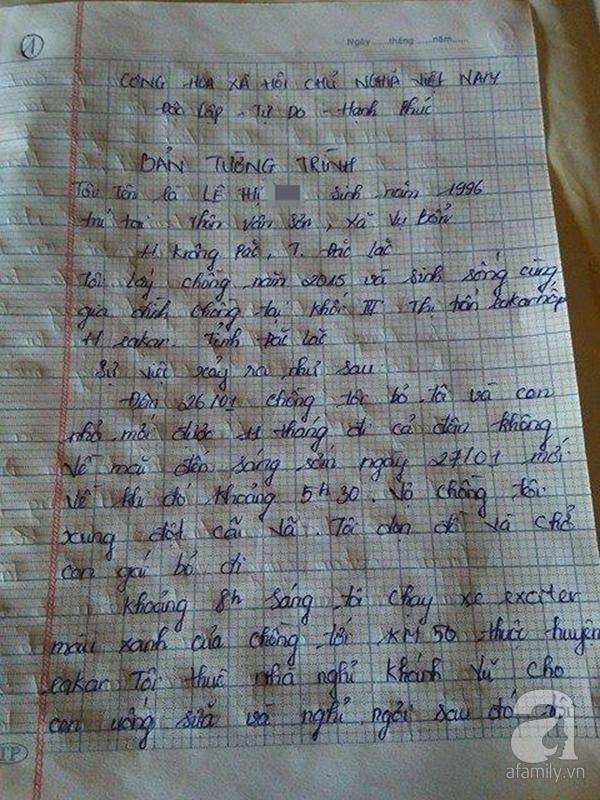 1
Ngày ..... tháng ..... năm.....
CỘNG HÒA XÃ HỘI CHỦ NGHĨA VIỆT NAM
Độc Lập - Tự Do - Hạnh Phúc
BẢN TƯỜNG TRÌNH
Tôi tên là LÊ THỊ sinh năm 1996
trú tại : Thôn Vân Sơn, xã Vụ Bổn
H Krông Pắc, T. Đắc Lắc
Tôi lấy chồng năm 2015 và sinh sống cùng
gia đình chồng tại khối III Thị trấn eakarnốp
H eakar. Tỉnh Đắc Lắc
Sự việc xảy ra như sau:
Đêm 26/01 chồng tôi bỏ tôi và con
nhỏ mới được 11 tháng đi cả đêm không
về mãi đến sáng sớm ngày 27/01 mới
về khi đó khoảng 5h30. Vợ chồng tôi
xung đột cãi vã. Tôi dọn đồ và chở
con gái bỏ đi
Khoảng 8h sáng tôi chạy xe exciter
màu xanh của chồng tới KM 50 thuộc huyện
eakar Tôi thuê nhà nghỉ Khánh Vũ cho
con uống sữa và nghỉ ngơi sau đó
TP
a
afamily.vn